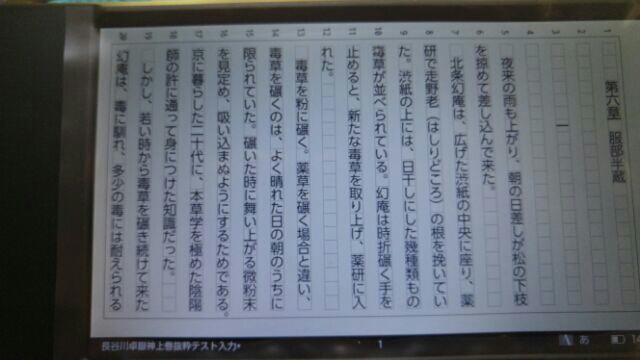 第六章　服部半蔵
一
夜来の雨も上がり、朝の日差しが松の下枝
を掠めて差し込んで来た。
北条幻庵は、広げた渋紙の中央に座り、薬
研で走野老（はしりどころ）の根を挽いてい
た。渋紙の上には、日干しにした幾種類もの
毒草が並べられている。幻庵は時折碾く手を
止めると、新たな毒草を取り上げ、薬研に入
れた。
毒草を粉に碾く。薬草を碾く場合と違い、
毒草を碾くのは、よく晴れた日の朝のうちに
限られていた。碾いた時に舞い上がる微粉末
を見定め、吸い込まぬようにするためである。
京に暮らした二十代に、本草学を極めた陰陽
師の許に通って身につけた知識だった。
しかし、若い時から毒草を碾き続けて来た
幻庵は、毒に馴れ、多少の毒には耐えられる
1
2
3
4
5
6
7
8
9
10
11
12
13
14
15
16
17
18
19
20
長谷川卓嶽神上巻抜粋テスト入力*
1
A あ